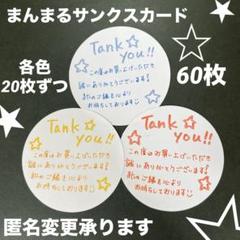 まんまるサンクスカード
各色
20枚ずつ
60枚
Tank
you!!
この度はお買い上げいただき
誠にありがとうございます!
またのご縁を心より
お待ちしております
Tank
you!!
この度はお買い上げいただき
誠にありがとうございます!
またのご縁を心より
お待ちしております
Tank
you!!
この度はお買い上げいただき
誠にありがとうございます!
またのご縁を心より
お待ちしております
匿名変更承ります